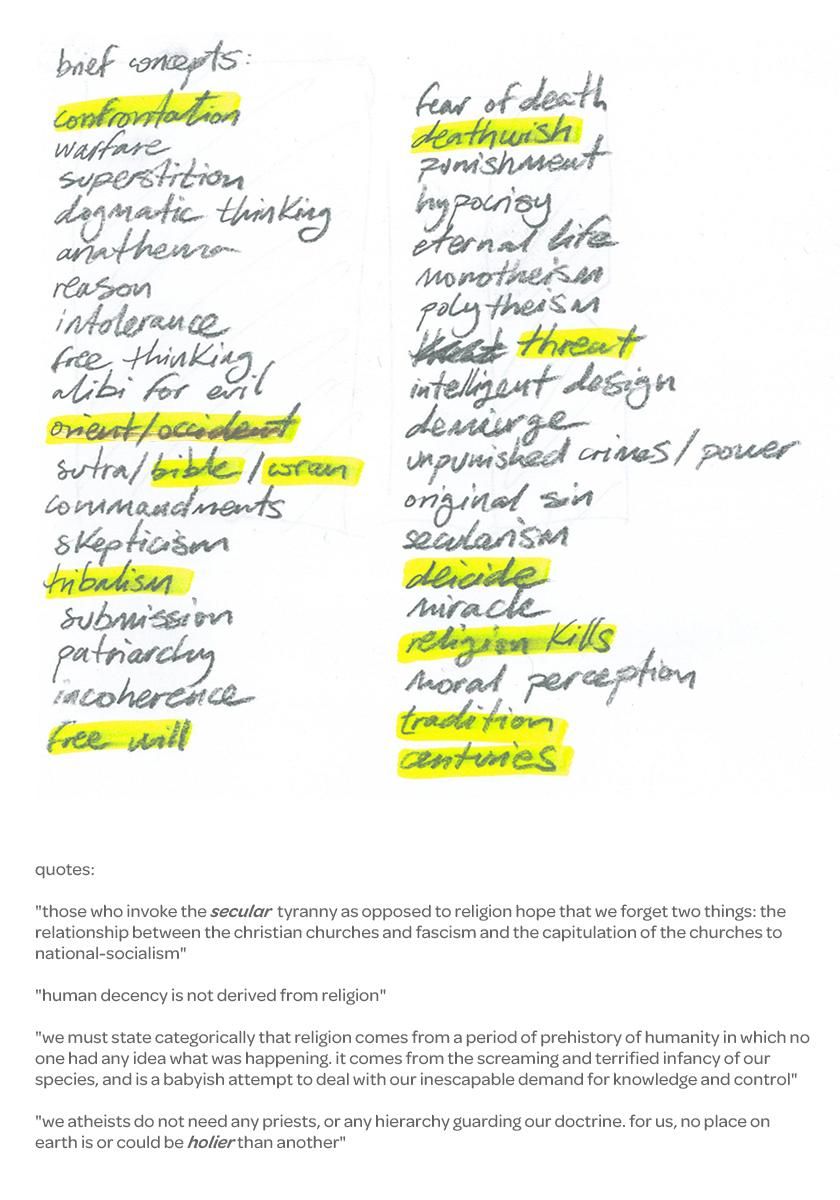 brief concepts:
confrontation
warfare
superstition
dogmatic thinking
anathema
reason
intolerance
free thinking
alibi for evil
orient/occident
sutra/bible/coran
commandments
skepticism
tribalism
submission
patriarchy
incoherence
free will
fear of death
deathwish
punishment
hypocrisy
eternal life
monotheism
polytheism
threat
intelligent design
demiurge
unpunished crimes/power
original sin
secularism
deicide
miracle
religion kills
moral perception
tradition
centuries
quotes:
"those who invoke the secular tyranny as opposed to religion hope that we forget two things: the
relationship between the christian churches and fascism and the capitulation of the churches to
national-socialism"
"human decency is not derived from religion"
"we must state categorically that religion comes from a period of prehistory of humanity in which no
one had any idea what was happening. it comes from the screaming and terrified infancy of our
species, and is a babyish attempt to deal with our inescapable demand for knowledge and control"
"we atheists do not need any priests, or any hierarchy guarding our doctrine. for us, no place on
earth is or could be holier than another"